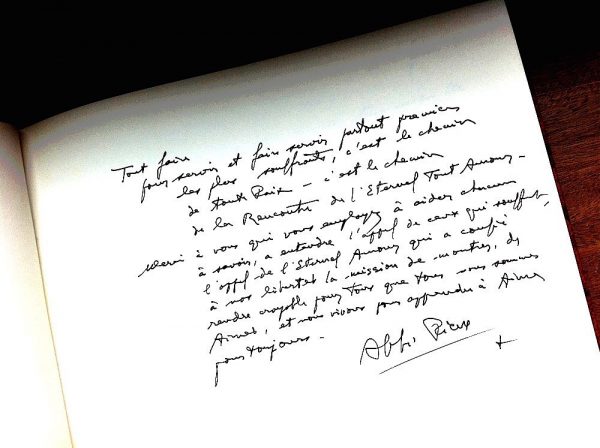 Tout faire
pour servir et faire servir partout premiers
les plus souffrants, c'est le chemin
de toute Paix – c'est le chemin
de la Rencontre de l'Eternel Tout Amour –
Merci à vous qui vous employez à aider chacun
à savoir, à entendre l'appel de ceux qui souffrent,
l'appel de l'Eternel Amour qui a confié
à nos libertés la mission de montrer, de
rendre croyable pour Tous que Tous nous sommes
Aimés, et nous vivons pour apprendre à Aimer
pour toujours –
Abbé Pierre